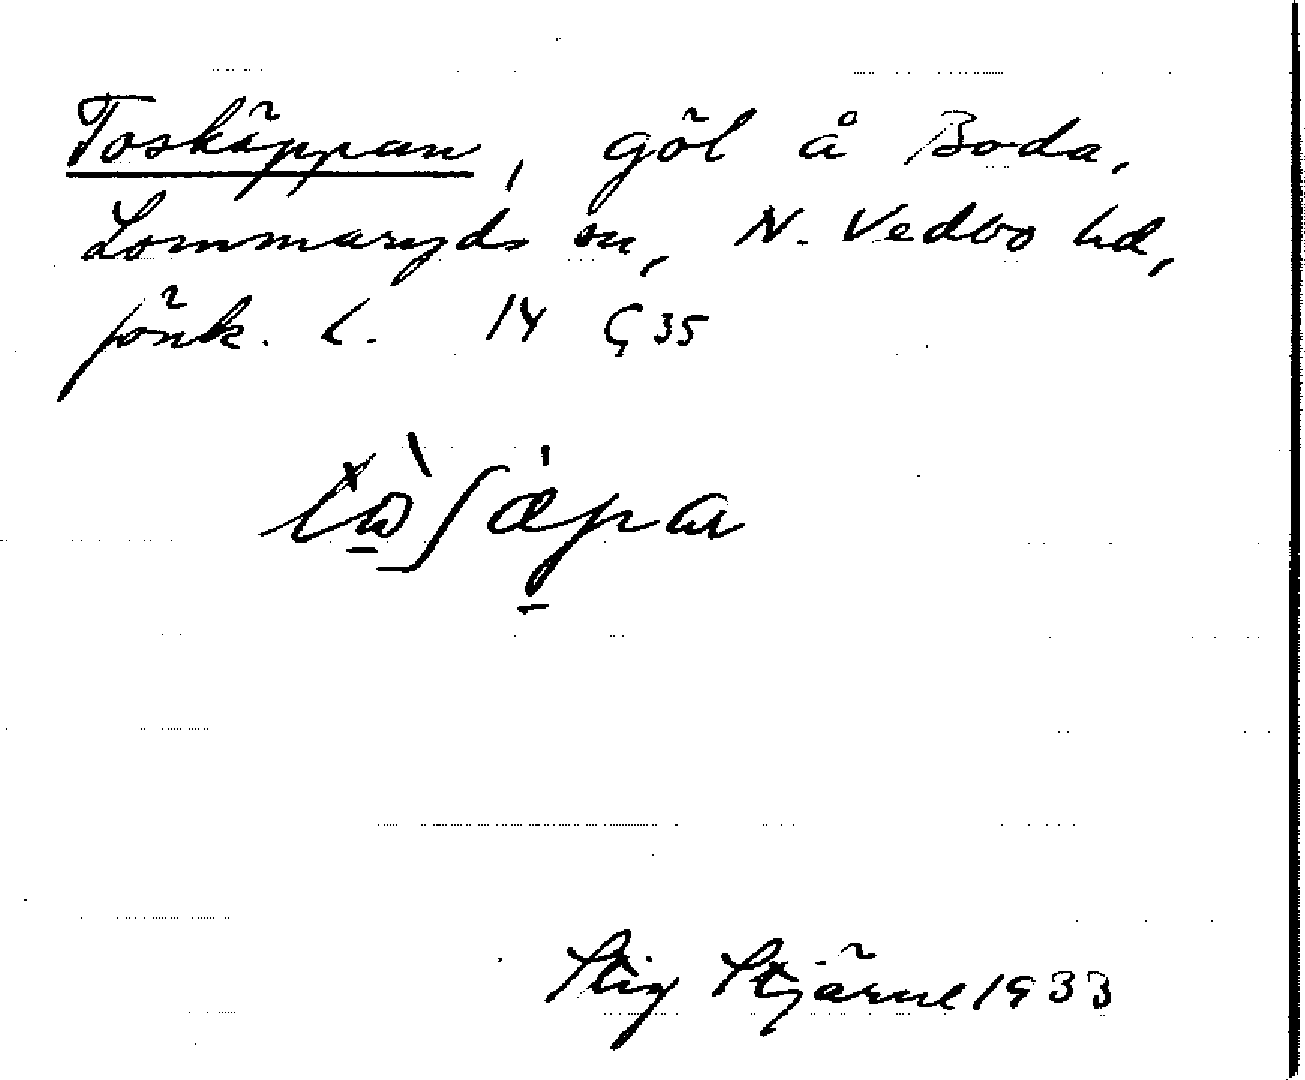 Toskäppan, göl å Boda,
Lommaryds sn, N. Vedbo hd,
Jönk. L. 14 G 35
Stig Stjärne 1933